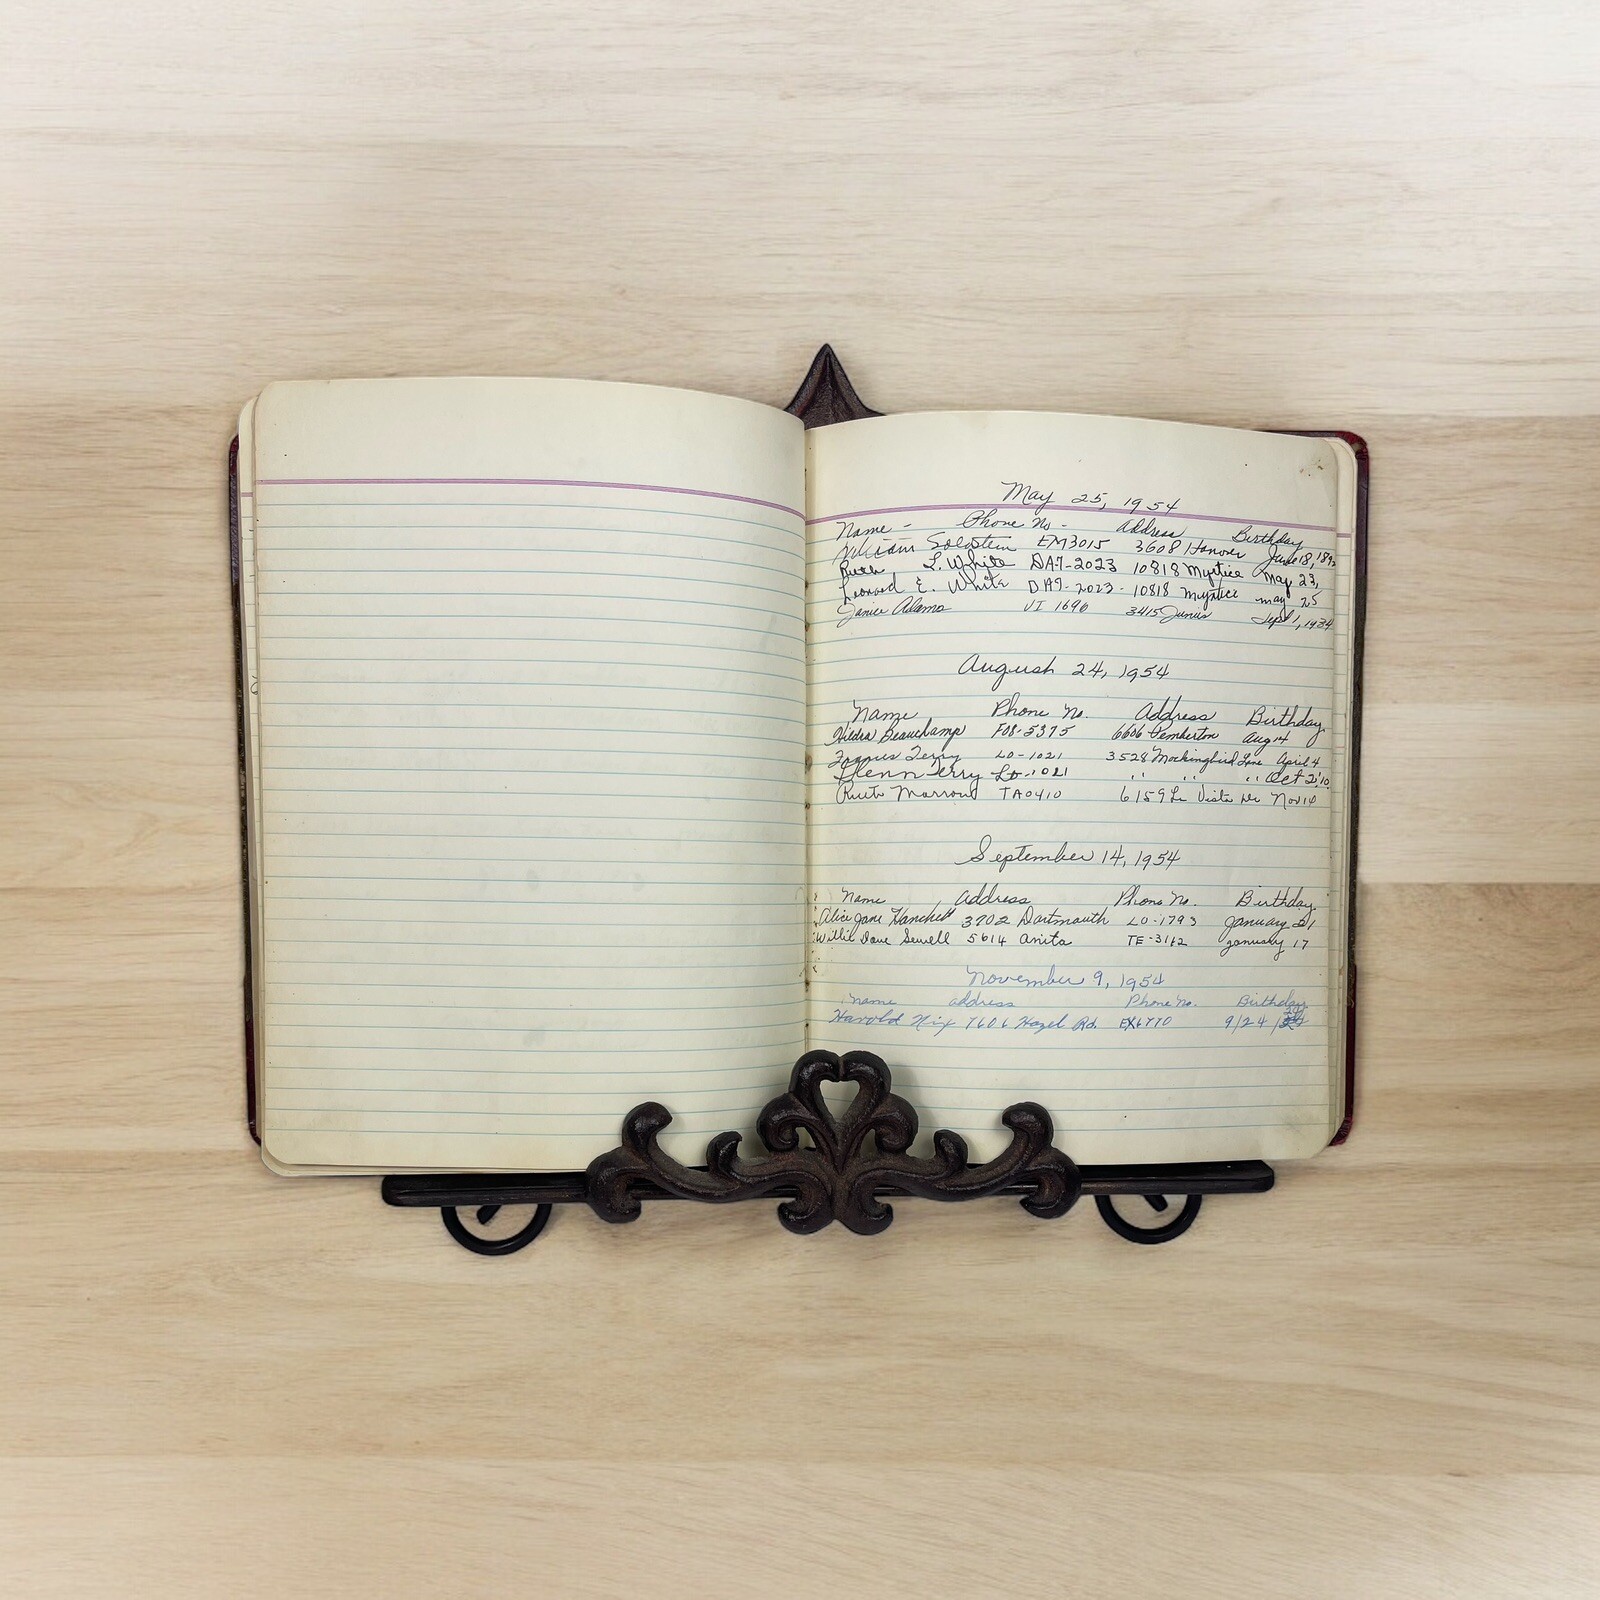 May 25, 1954
Name - Phone No - Address Birthday
William Goldstein EM3015 3608 Hanover June 18, 189
Ruth L. White DA7-2023 10818 Myrtice May 23,
Leonard E. White DA7-2023 - 10818 Myrtice May 25
Janice Adams VI 1696 3415 Junius Sept 1, 1934
August 24, 1954
Name Phone No. Address Birthday
Hilda Beauchamp FO8-5375 6606 Pemberton Aug 14
Terry LO-1021 3528 Mockingbird Lane April 4
Glenn Terry LO-1021 " " " Oct 2, '10
Ruth TA0410 6159 La Vista Dr Nov 14
September 14, 1954
Name Address Phone No. Birthday
Alice Jane Hanchett 3702 Dartmouth LO-1793 January 21
Willie Dave Sewell 5614 Anita TE-3162 January 17
November 9, 1954
Name address Phone No. Birthday
Harold Nix 7606 Hazel Rd. EX6770 9/24/